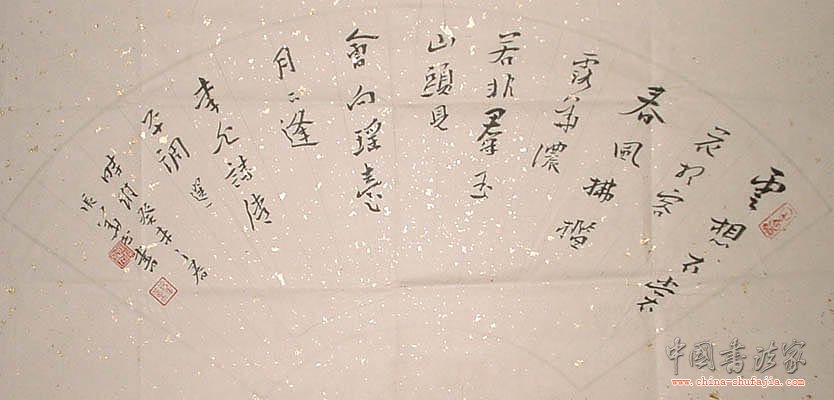 雲想衣裳
花想容
春風拂檻
露華濃
若非羣玉
山頭見
會向瑶臺
月下逢
李白詩清
平調選
癸未
中国书法家
www.china-shufajia.com